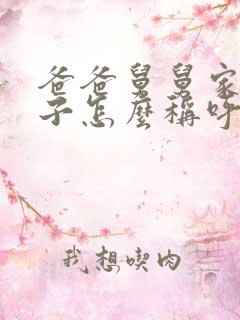 爸爸舅舅家
子怎麼稱呼
我想喫肉